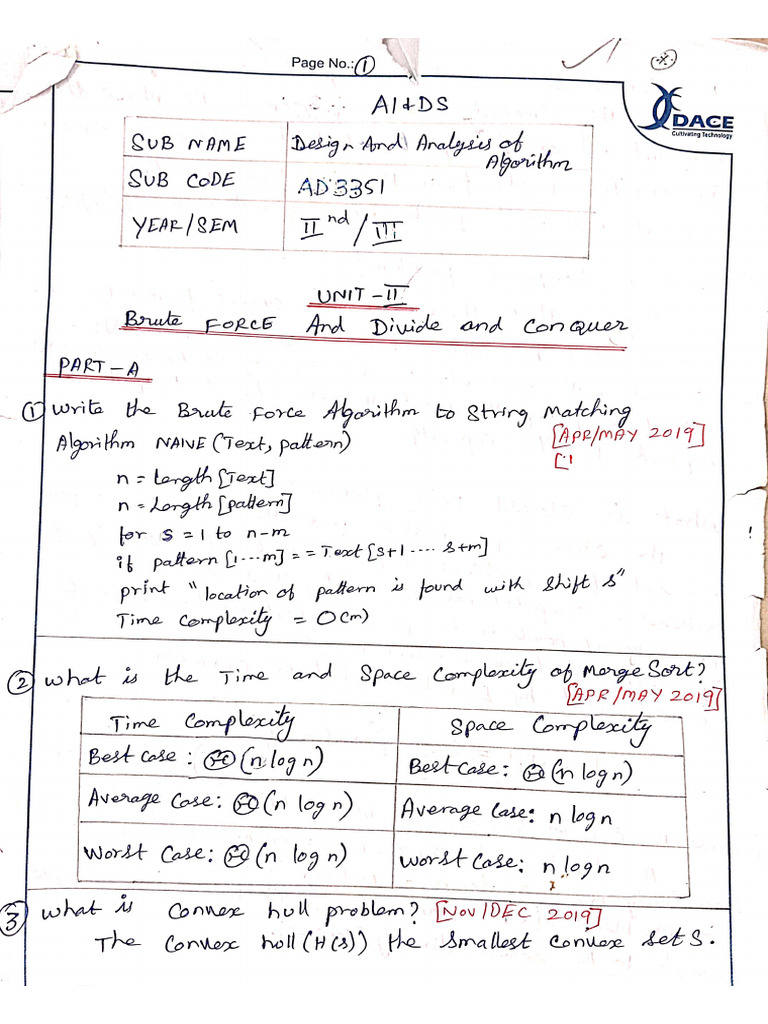 Page No.: 1
DACE
Cultivating Technology
AI&DS
SUB NAME Design And Analysis of Algorithm
SUB CODE AD3351
YEAR/SEM II nd / III
UNIT-II
Brute FORCE And Divide and Conquer
PART-A
1 Write the Brute Force Algorithm to String Matching
[APR/MAY 2019]
Algorithm NAIVE (Text, pattern)
n = Length [Text]
n = Length [pattern]
for s = 1 to n-m
if pattern [1---m] == Text [s+1 .... s+m]
print "location of pattern is found with shift s"
Time Complexity = O(m)
2 What is the Time and Space Complexity of Merge Sort?
[APR/MAY 2019]
Time Complexity Space Complexity
Best case : Θ(n log n) Best Case: Θ(n log n)
Average Case: Θ(n log n) Average Case: n log n
Worst Case: Θ(n log n) Worst Case: n log n
3 What is Convex hull problem? [NOV/DEC 2019]
The Convex hull (H(s)) the smallest convex set S.